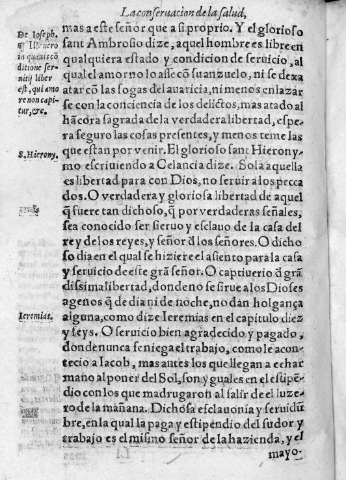 La conseruacion de la salud,
mas a este señor que a si proprio. Y el glorioso
sant Ambrosio dize, aquel hombre es libre en
qualquiera estado y condicion de seruicio, al
qual el amor no lo assecõ su anzuelo, ni se dexa
atar cõ las sogas del auaricia, ni menos enlazar
se con la conciencia de los delictos, mas atado al
hãcora sagrada de la verdadera libertad, espe-
ra seguro las cosas presentes, y menos teme las
que estan por venir. El glorioso sant Hierony-
mo escriuiendo a Celancia dize. Sola aquella
es libertad para con Dios, no seruir a los pecca
dos. O verdadera y gloriosa libertad de aquel
q̃ fuere tan dichoso, q̃ por verdaderas señales,
sea conocido ser sieruo y esclauo de la casa del
rey de los reyes, y señor d̃ los señores. O dicho
so dia en el qual se hiziere el asiento para la casa
y seruicio de este grã señor. O captiuerio d̃ grã
dissima libertad, donde no se sirue a los Dioses
agenos q̃ de dia ni de noche, no dan holgança
alguna, como dize Ieremias en el capitulo diez
y seys. O seruicio bien agradecido y pagado,
donde nunca se niega el trabajo, como le acon-
tecio a Iacob, mas antes los que llegan a echar
mano al poner del Sol, son yguales en el estipẽ-
dio con los que madrugaron al salir de el luze-
ro de la mañana. Dichosa esclauonia y seruidũ
bre, en la qual la paga y estipendio del sudor y
trabajo es el mismo señor de la hazienda, y el
mayo-
De Ioseph.
qq Libuero
ditione ser-
nitij liber
est, qui amo
re non capi-
tur, &c.
S. Hierony.
Ieremias.